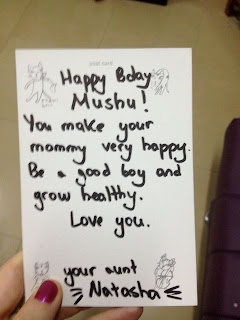 post card
Happy Bday
Mushu!
You make your
mommy very happy.
Be a good boy and
grow healthy.
Love you.
your aunt
Natasha